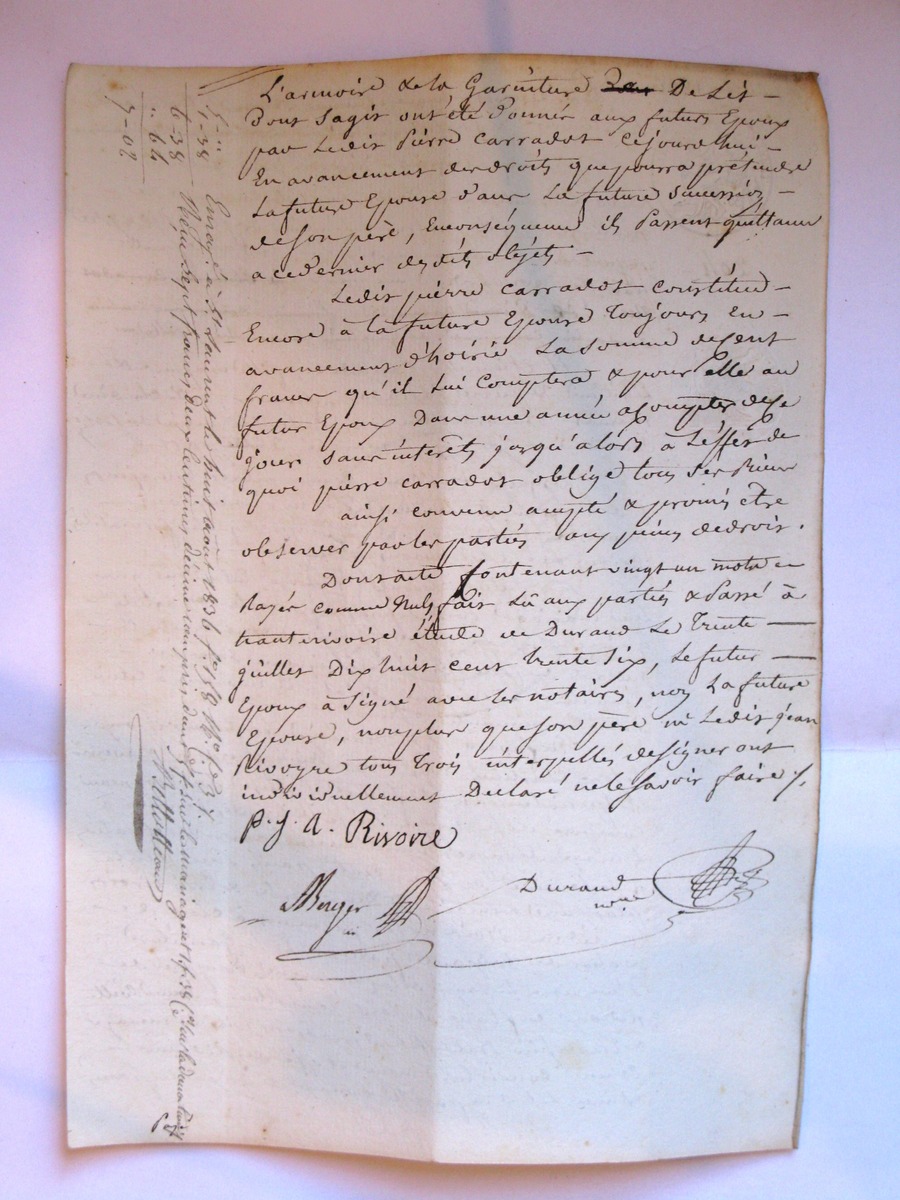 L'armoire & la Garniture De Lit –
Dont Sagit ont été Donnée aux futurs Epoux
par Ledit Pierre Carradot Cejourd'hui –
En avancement des droits que pourra prétendre
La future Epouse dans La future Succession –
de Son père, En conséquence ils Passent quittance
a ce dernier desdits objets –
Ledit pierre Carradot Constitue –
Encore à la future Epouse Toujours En –
avancement d'hoirie La Somme de Cent
francs qu'il Lui Comptera & pour Elle au
futur Epoux Dans une année a Compter de ce
jour Sans intérêts jusqu'alors à L'effet de
quoi pierre carradot oblige tous Ses Biens
ainsi convenu accepté & promis Etre
observer par les partiés aux peines de droit.
Dont acte Contenant vingt un mots
Rayés comme Nuls, fait Lû aux partiés & Passé à
hauterivoire étude de Durand Le Trente —
juillet Dix huit cent trente Six, Le futur —
Epoux à Signé avec les notaires, non La future
Epouse, non plus que Son père ni Ledit jean
Rivoyre tous Trois interpellés de Signer ont
individuellement Déclaré ne le Savoir faire /.
p. J. A. Rivoire
Berger
Durand
nore
5-38
6-38
.. 64
7-02
Enreg. à St Laurent le huit août 1836 fo 158
Reçu Sept francs deux centimes, décime compris, dont